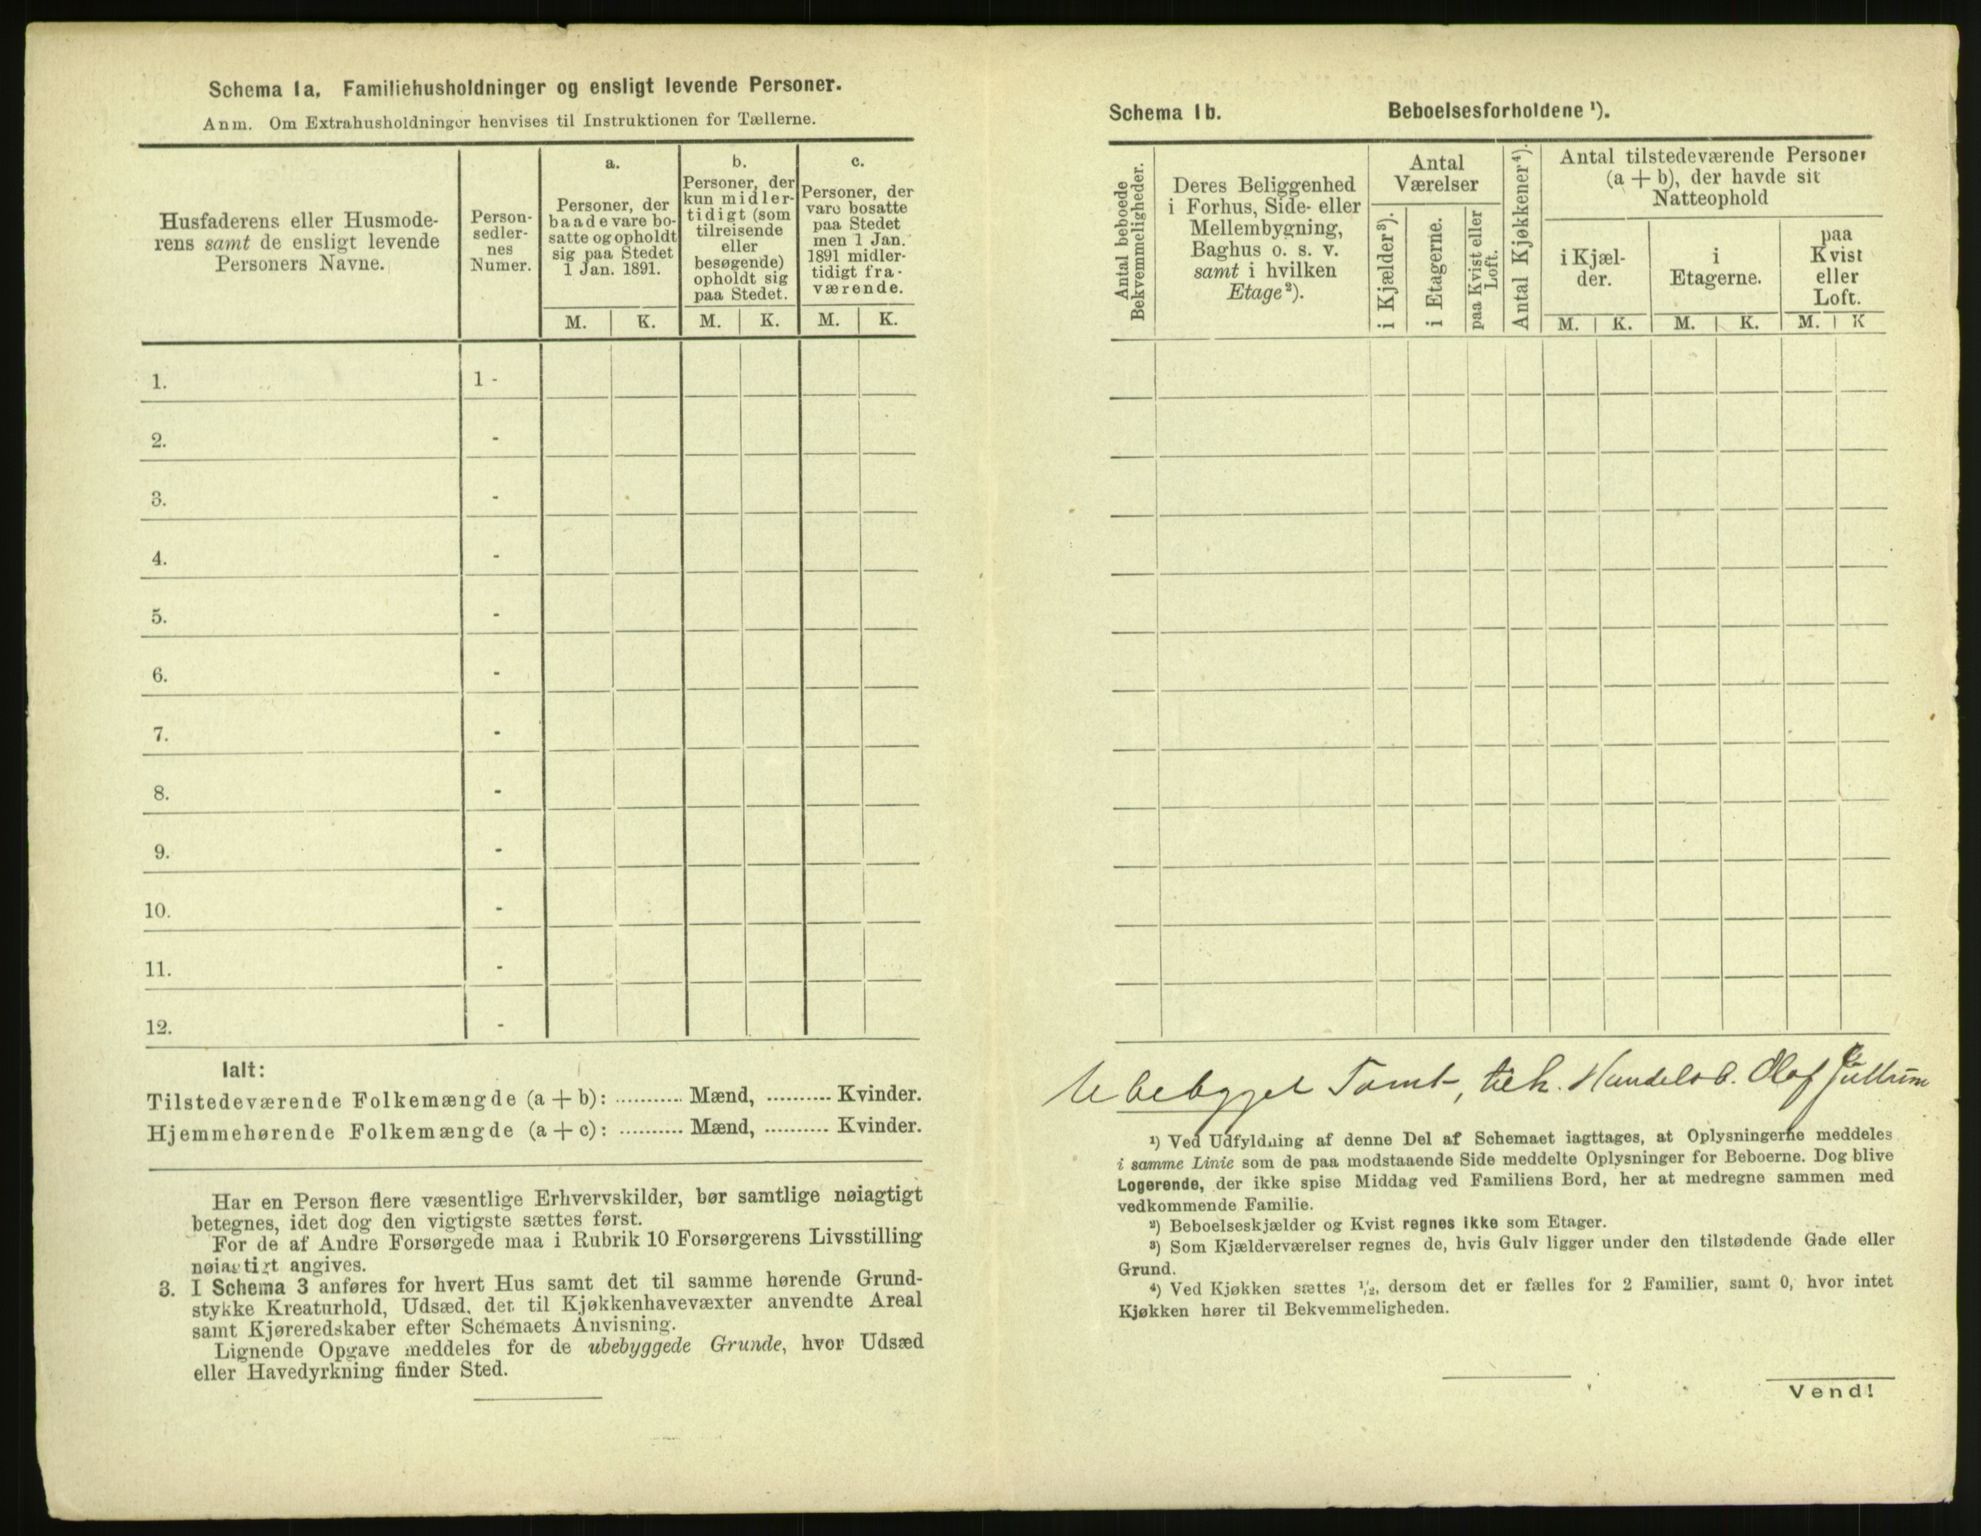 Schema 1a. Familiehusholdninger og ensligt levende Personer.
Anm. Om Extrahusholdninger henvises til Instruktionen for Tællerne.
Husfaderens eller Husmode-
rens samt de ensligt levende
Personers Navne.
Person-
sedler-
nes
Numer.
a.
Personer, der
baade vare bo-
satte og opholdt
sig paa Stedet
1 Jan. 1891.
b.
Personer, der
kun midler-
tidigt (som
tilreisende
eller
besøgende)
opholdt sig
paa Stedet.
c.
Personer, der
vare bosatte
paa Stedet
men 1 Jan.
1891 midler-
tidigt fra-
værende.
M. K. M. K. M. K.
1. 1 -
2. -
3. -
4. -
5. -
6. -
7. -
8. -
9. -
10. -
11. -
12. -
Ialt:
Tilstedeværende Folkemængde (a + b): .......... Mænd, .......... Kvinder.
Hjemmehørende Folkemængde (a + c): .......... Mænd, .......... Kvinder.
Har en Person flere væsentlige Erhvervskilder, bør samtlige nøiagtigt
betegnes, idet dog den vigtigste sættes først.
For de af Andre Forsørgede maa i Rubrik 10 Forsørgerens Livsstilling
nøiagtigt angives.
3. I Schema 3 anføres for hvert Hus samt det til samme hørende Grund-
stykke Kreaturhold, Udsæd, det til Kjøkkenhavevæxter anvendte Areal
samt Kjøreredskaber efter Schemaets Anvisning.
Lignende Opgave meddeles for de ubebyggede Grunde, hvor Udsæd
eller Havedyrkning finder Sted.
Schema 1b. Beboelsesforholdene ¹).
Antal beboede
Bekvemmeligheder.
Deres Beliggenhed
i Forhus, Side- eller
Mellembygning,
Baghus o. s. v.
samt i hvilken
Etage²).
Antal
Værelser
i Kjælder³).
i Etagerne.
paa Kvist eller
Loft.
Antal Kjøkkener⁴).
Antal tilstedeværende Personer
(a + b), der havde sit
Natteophold
i Kjæl-
der.
i
Etagerne.
paa
Kvist
eller
Loft.
M. K. M. K. M. K
Ubebygget Tomt, tilh. Handelsb. Olaf Jullum
¹) Ved Udfyldning af denne Del af Schemaet iagttages, at Oplysningerne meddeles
i samme Linie som de paa modstaaende Side meddelte Oplysninger for Beboerne. Dog blive
Logerende, der ikke spise Middag ved Familiens Bord, her at medregne sammen med
vedkommende Familie.
²) Beboelseskjælder og Kvist regnes ikke som Etager.
³) Som Kjælderværelser regnes de, hvis Gulv ligger under den tilstødende Gade eller
Grund.
⁴) Ved Kjøkken sættes ¹/₂, dersom det er fælles for 2 Familier, samt 0, hvor intet
Kjøkken hører til Bekvemmeligheden.
Vend!